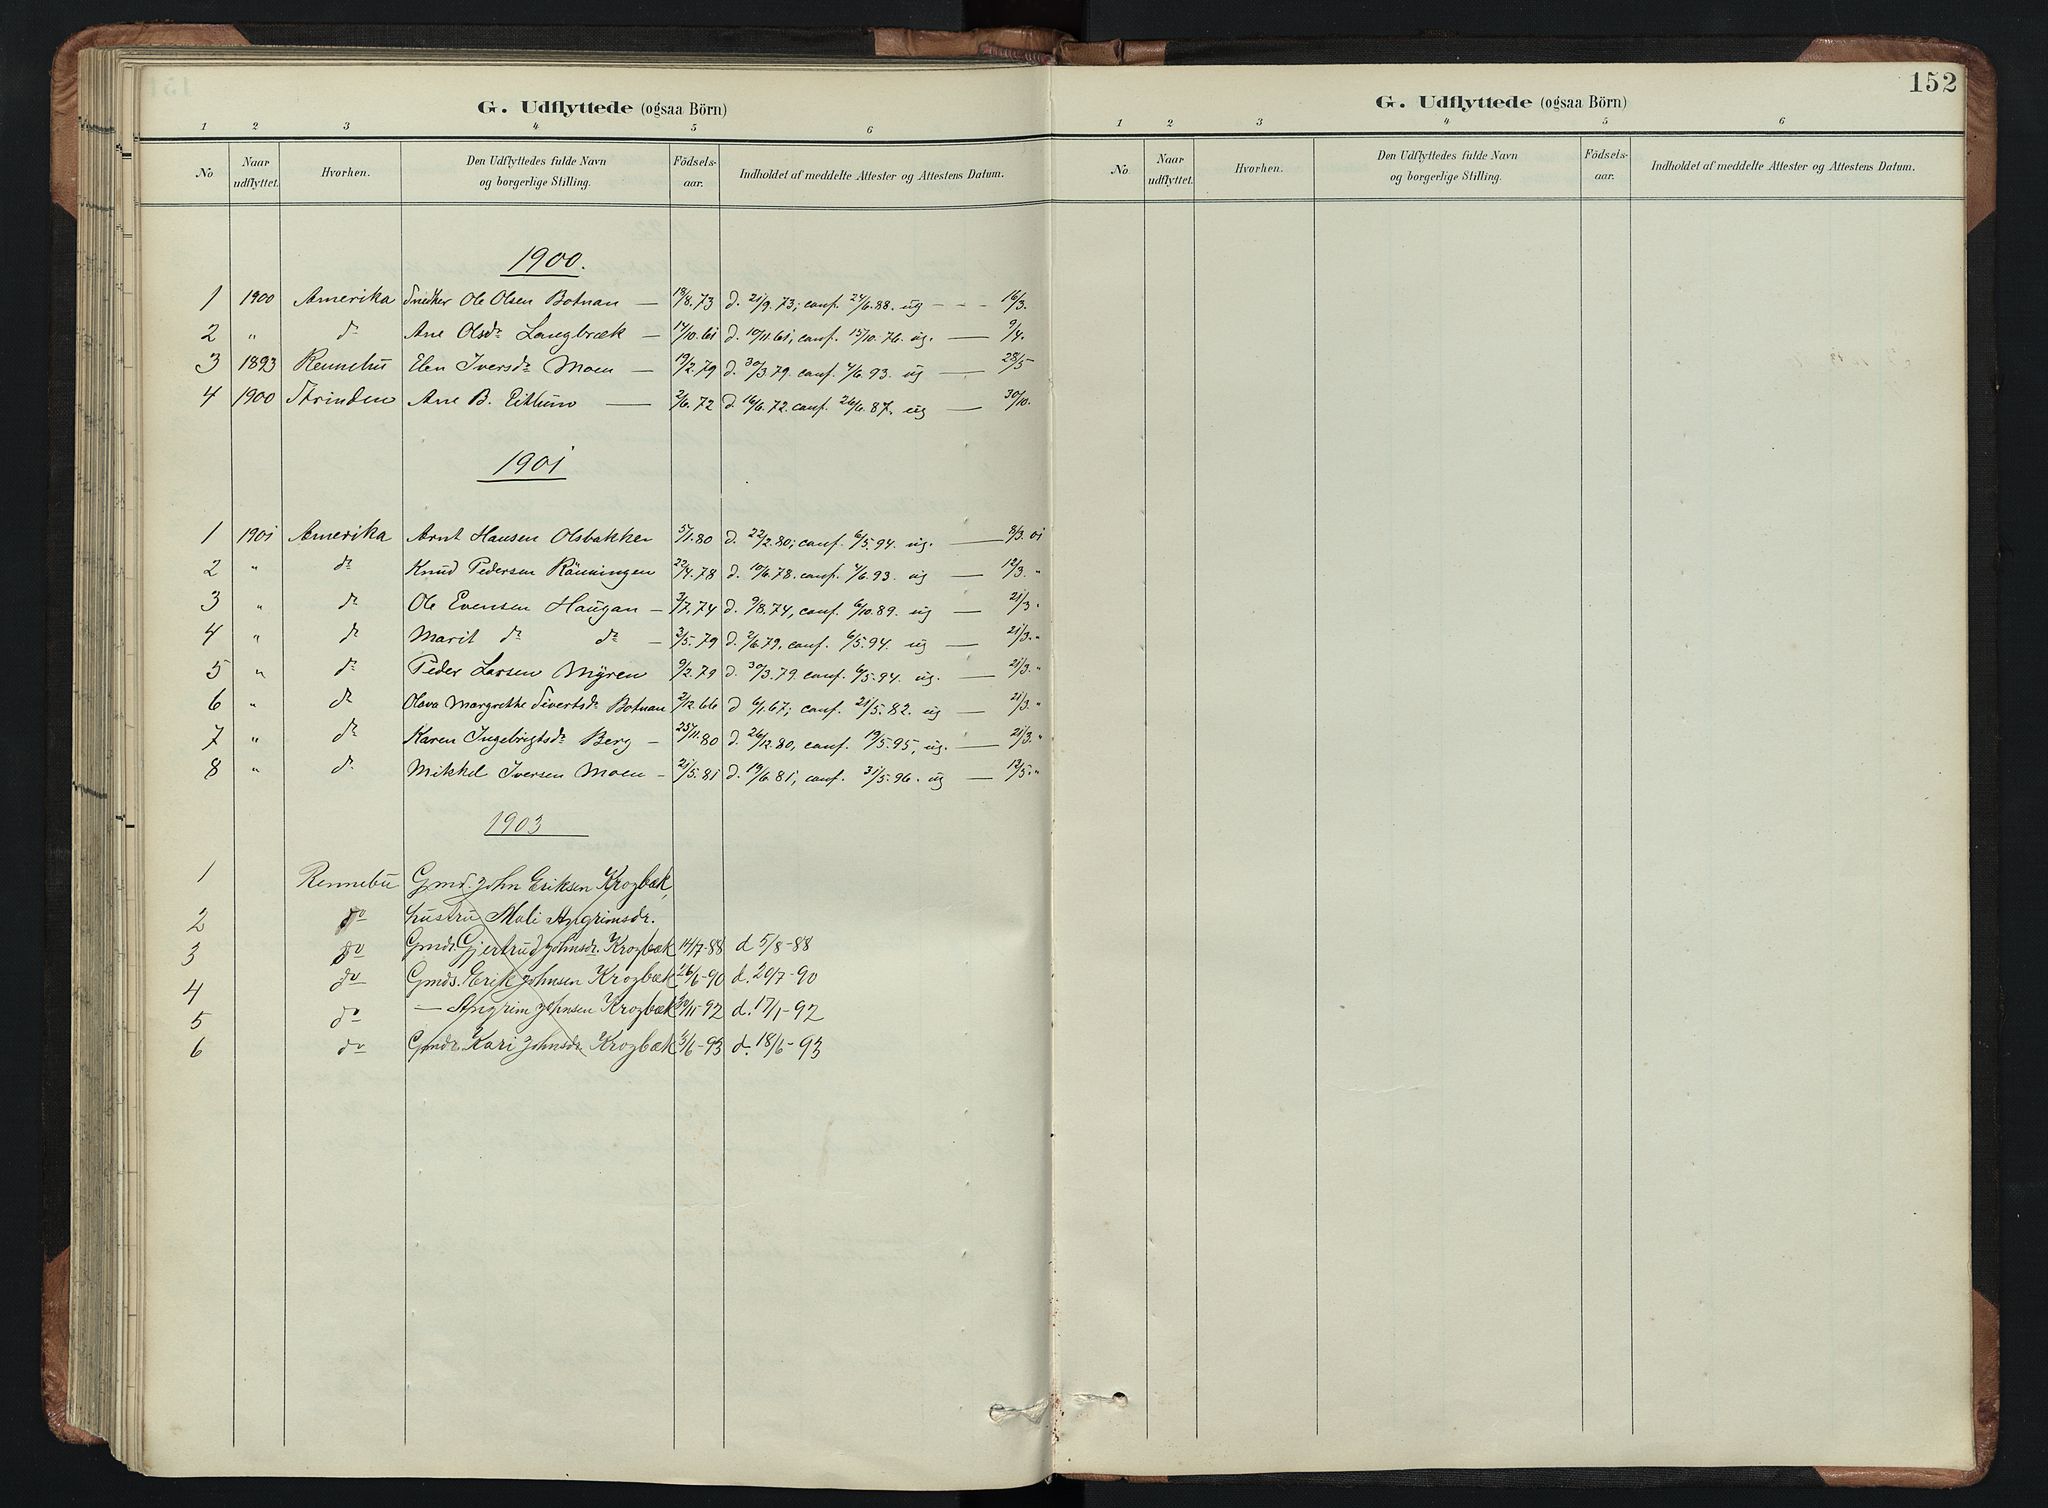 G. Udflyttede (ogsaa Börn)
1 2 3 4 5 6
No Naar udflyttet. Hvorhen. Den Udflyttedes fulde Navn og borgerlige Stilling. Födsels-aar. Indholdet af meddelte Attester og Attestens Datum.
1900.
1 1900 Amerika Snedker Ole Olsen Botnan — 18/8.73 d. 21/9.73; conf. 24/6.88. ug - - - 16/3.
2 " do Ane Olsdr Langbræk — 14/10.61 d. 10/11.61; conf. 15/10.76. ug. — 9/4.
3 1893 Rennebu Elen Iversdr Moen — 19/2.79 d. 30/3.79. conf. 4/6.93. ug — 28/5
4 1900 Strinden Ane B. — 2/6.72 d. 16/6.72. conf. 26/6.87. ug — 30/10.
1901
1 1901 Amerika Arnt Hansen Olsbakken 5/1.80 d. 22/2.80; conf. 6/5.94. ug. — 8/3.01
2 " do Knud Pedersen Rönningen 22/4.78 d. 10/6.78. conf. 4/6.93. ug — 12/3. "
3 " do Ole Evensen Haugan — 3/7.74 d. 9/8.74, conf. 6/10.89. ug — 21/3. "
4 " do Marit do do — 3/5.79 d. 2/6.79. conf. 6/5.94. ug — 21/3. "
5 " do Peder Larsen Myren 9/2.79 d. 30/3.79. conf. 6/5.94. ug. — 21/3. "
6 " do Olava Margrethe Sivertsdr Botnan 2/12.66 d 6/1.67; conf. 21/5.82. ug — 21/3. "
7 " do Karen Ingebrigtsdr Berg — 25/11.80 d. 26/12.80, conf. 19/5.95, ug. — 21/3. "
8 " do Mikkel Iversen Moen — 21/5.81 d. 19/6.81, conf. 31/5.96. ug — 12/5. "
1903
1 Rennebu Gmd. John Eriksen Krogbæk,
2 do hustru Mali Angrimsdr.
3 do Gmdr. Gjertrud Johnsdr. Krogbæk 14/7-88 d 5/8-88
4 do Gmds. Erik Johnsen Krogbæk 26/6-90 d. 20/7-90
5 do — Angrim Johnsen Krogbæk d. 17/1-92
6 do Gmdr. Kari Johnsdr. Krogbæk 3/6-93 d. 18/6-93
152
G. Udflyttede (ogsaa Börn)
1 2 3 4 5 6
No. Naar udflyttet. Hvorhen. Den Udflyttedes fulde Navn og borgerlige Stilling. Födsels-aar. Indholdet af meddelte Attester og Attestens Datum.